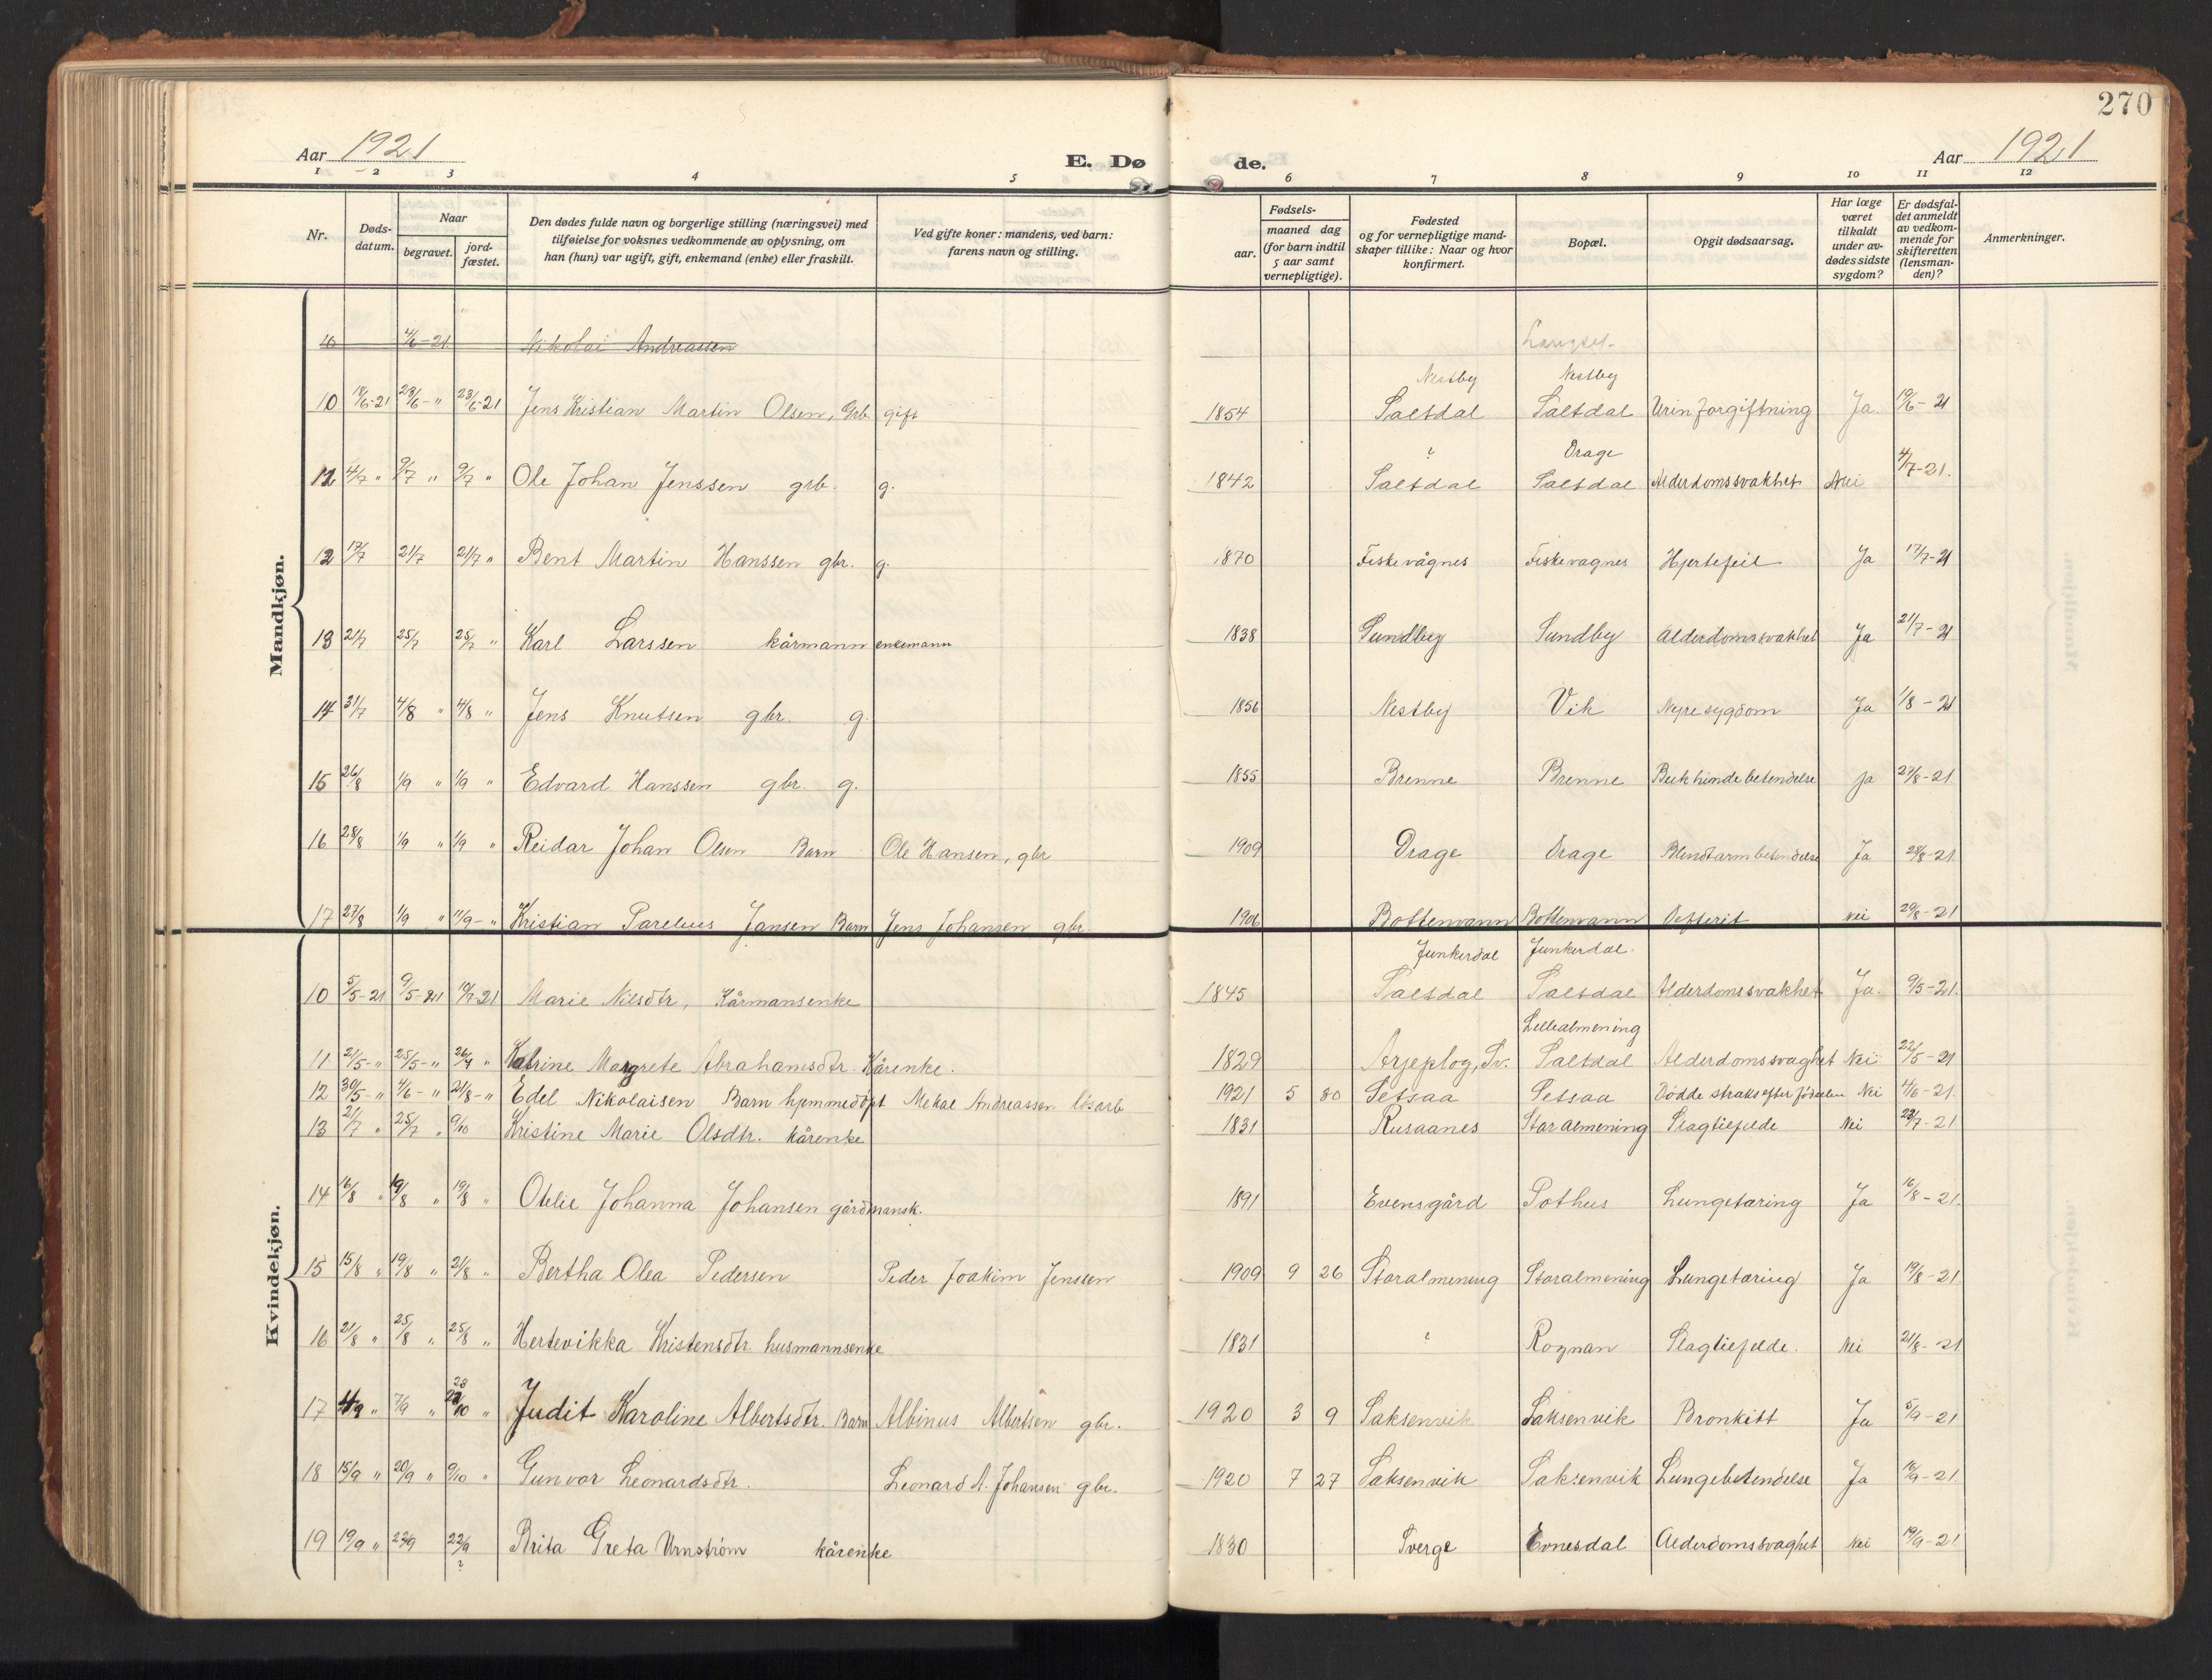 270
Aar 1921 E. Dø de. Aar 1921
1 2 3 4 5 6 7 8 9 10 11 12
Nr. Døds-datum. Naar begravet. jord-fæstet. Den dødes fulde navn og borgerlige stilling (næringsvei) med tilføielse for voksnes vedkommende av oplysning, om han (hun) var ugift, gift, enkemand (enke) eller fraskilt. Ved gifte koner: mandens, ved barn: farens navn og stilling. Fødsels- aar. maaned dag (for barn indtil 5 aar samt vernepligtige). Fødested og for vernepligtige mand-skaper tillike: Naar og hvor konfirmert. Bopæl. Opgit dødsaarsag. Har læge været tilkaldt under av-dødes sidste sygdom? Er dødsfal-det anmeldt av vedkom-mende for skifteretten (lensman-den)? Anmerkninger.
Mandkjøn.
4/6-21 Nikolai Andreassen
Nestby Nestby
10 18/6-21 23/6-" 23/6-21 Jens Kristian Martin Olsen, Grb. gift 1854 Saltdal Saltdal Urinforgiftning Ja. 19/6-21
? Drage
4/7 " 9/7 " 9/7 " Ole Johan Jenssen grb. g. 1842 Saltdal Saltdal Alderdomssvakhet Nei 4/7-21.
12 17/7 21/7 21/7 " Bent Martin Hanssen gbr. g. 1870 Fiskevågnes Fiskevagnes Hjertefeil Ja 17/7-21
13 21/7 25/7 25/7 " Karl Larssen kårmann enkemann 1838 Sundby Sundby Alderdomssvakhet Ja 21/7-21
14 31/7 4/8 " 4/8 " Jens Knutsen gbr. g. 1856 Nestby Vik Nyresygdom Ja 1/8-21
15 26/8 1/9 " 1/9 " Edvard Hanssen gbr. g. 1855 Brenne Brenne Bukhindebetendelse Ja 27/8-21
16 28/8 1/9 " 1/9 " Reidar Johan Olsen Barn Ole Hansen, gbr 1909 Drage Drage Blindtarmbetendelse Ja 28/8-21
17 27/8 1/9 " 11/9-" Kristian Parelius Jansen Barn Jens Johansen gbr. 1906 Bottenvann Bottenvann Defterit nei 29/8-21
Kvindekjøn.
Junkerdal Junkerdal.
10 5/5-21 9/5-21 Marie Nilsdtr, Kårmansenke 1845 Saltdal Saltdal Alderdomssvakhet Ja. 9/5-21.
Lillealmening
11 21/5-" 25/5-" Katrine Margrete Abrahamsdtr. Kårenke. 1829 Arjeplog, Sv. Saltdal Alderdomssvaghet Nei 22/5-21
12 30/5-" 4/6-" 21/8-" Edel Nikolaisen Barn hjemmedöpt Mekal Andreassen lösarb 1921 5 30 Setsaa Setsaa Dödde straks efter födselen Nei 4/6-21.
13 21/7 " 25/7 " 9/10 Kristine Marie Olsdtr. kårenke 1831 Rusaanes Storalmening Slagtilfelde Nei 23/7-21
14 16/8 " 19/8 " 19/8 " Otelie Johanna Johansen gårdmansk. 1891 Evensgård Pothus Lungetæring Ja 16/8-21.
15 15/8 " 19/8 " 21/8 " Bertha Olea Pedersen Peder Joakim Jenssen 1909 9 26 Storalmening Storalmening Lungetæring Ja 19/8-21.
16 21/8 " 25/8 " 25/8 " Hertevikka Kristensdtr. husmannsenke 1831 ? Rognan Slagtilfelde. Nei 21/8-21
17 4/9 " 7/9 " 23/10 " Judit Karoline Albertsdtr. Barn Albinus Albertsen gbr. 1920 3 9 Saksenvik Saksenvik Bronkitt Ja 5/9-21
18 15/9 " 20/9 " 9/10 " Gunvor Leonardsdtr. Leonard A. Johansen gbr. 1920 7 27 Saksenvik Saksenvik Lungebetendelse Ja 16/9-21.
19 19/9 " 22/9 22/9 ? Brita Greta Urnström kårenke 1830 Sverge Evnesdal Alderdomssvaghet Nei 19/9-21